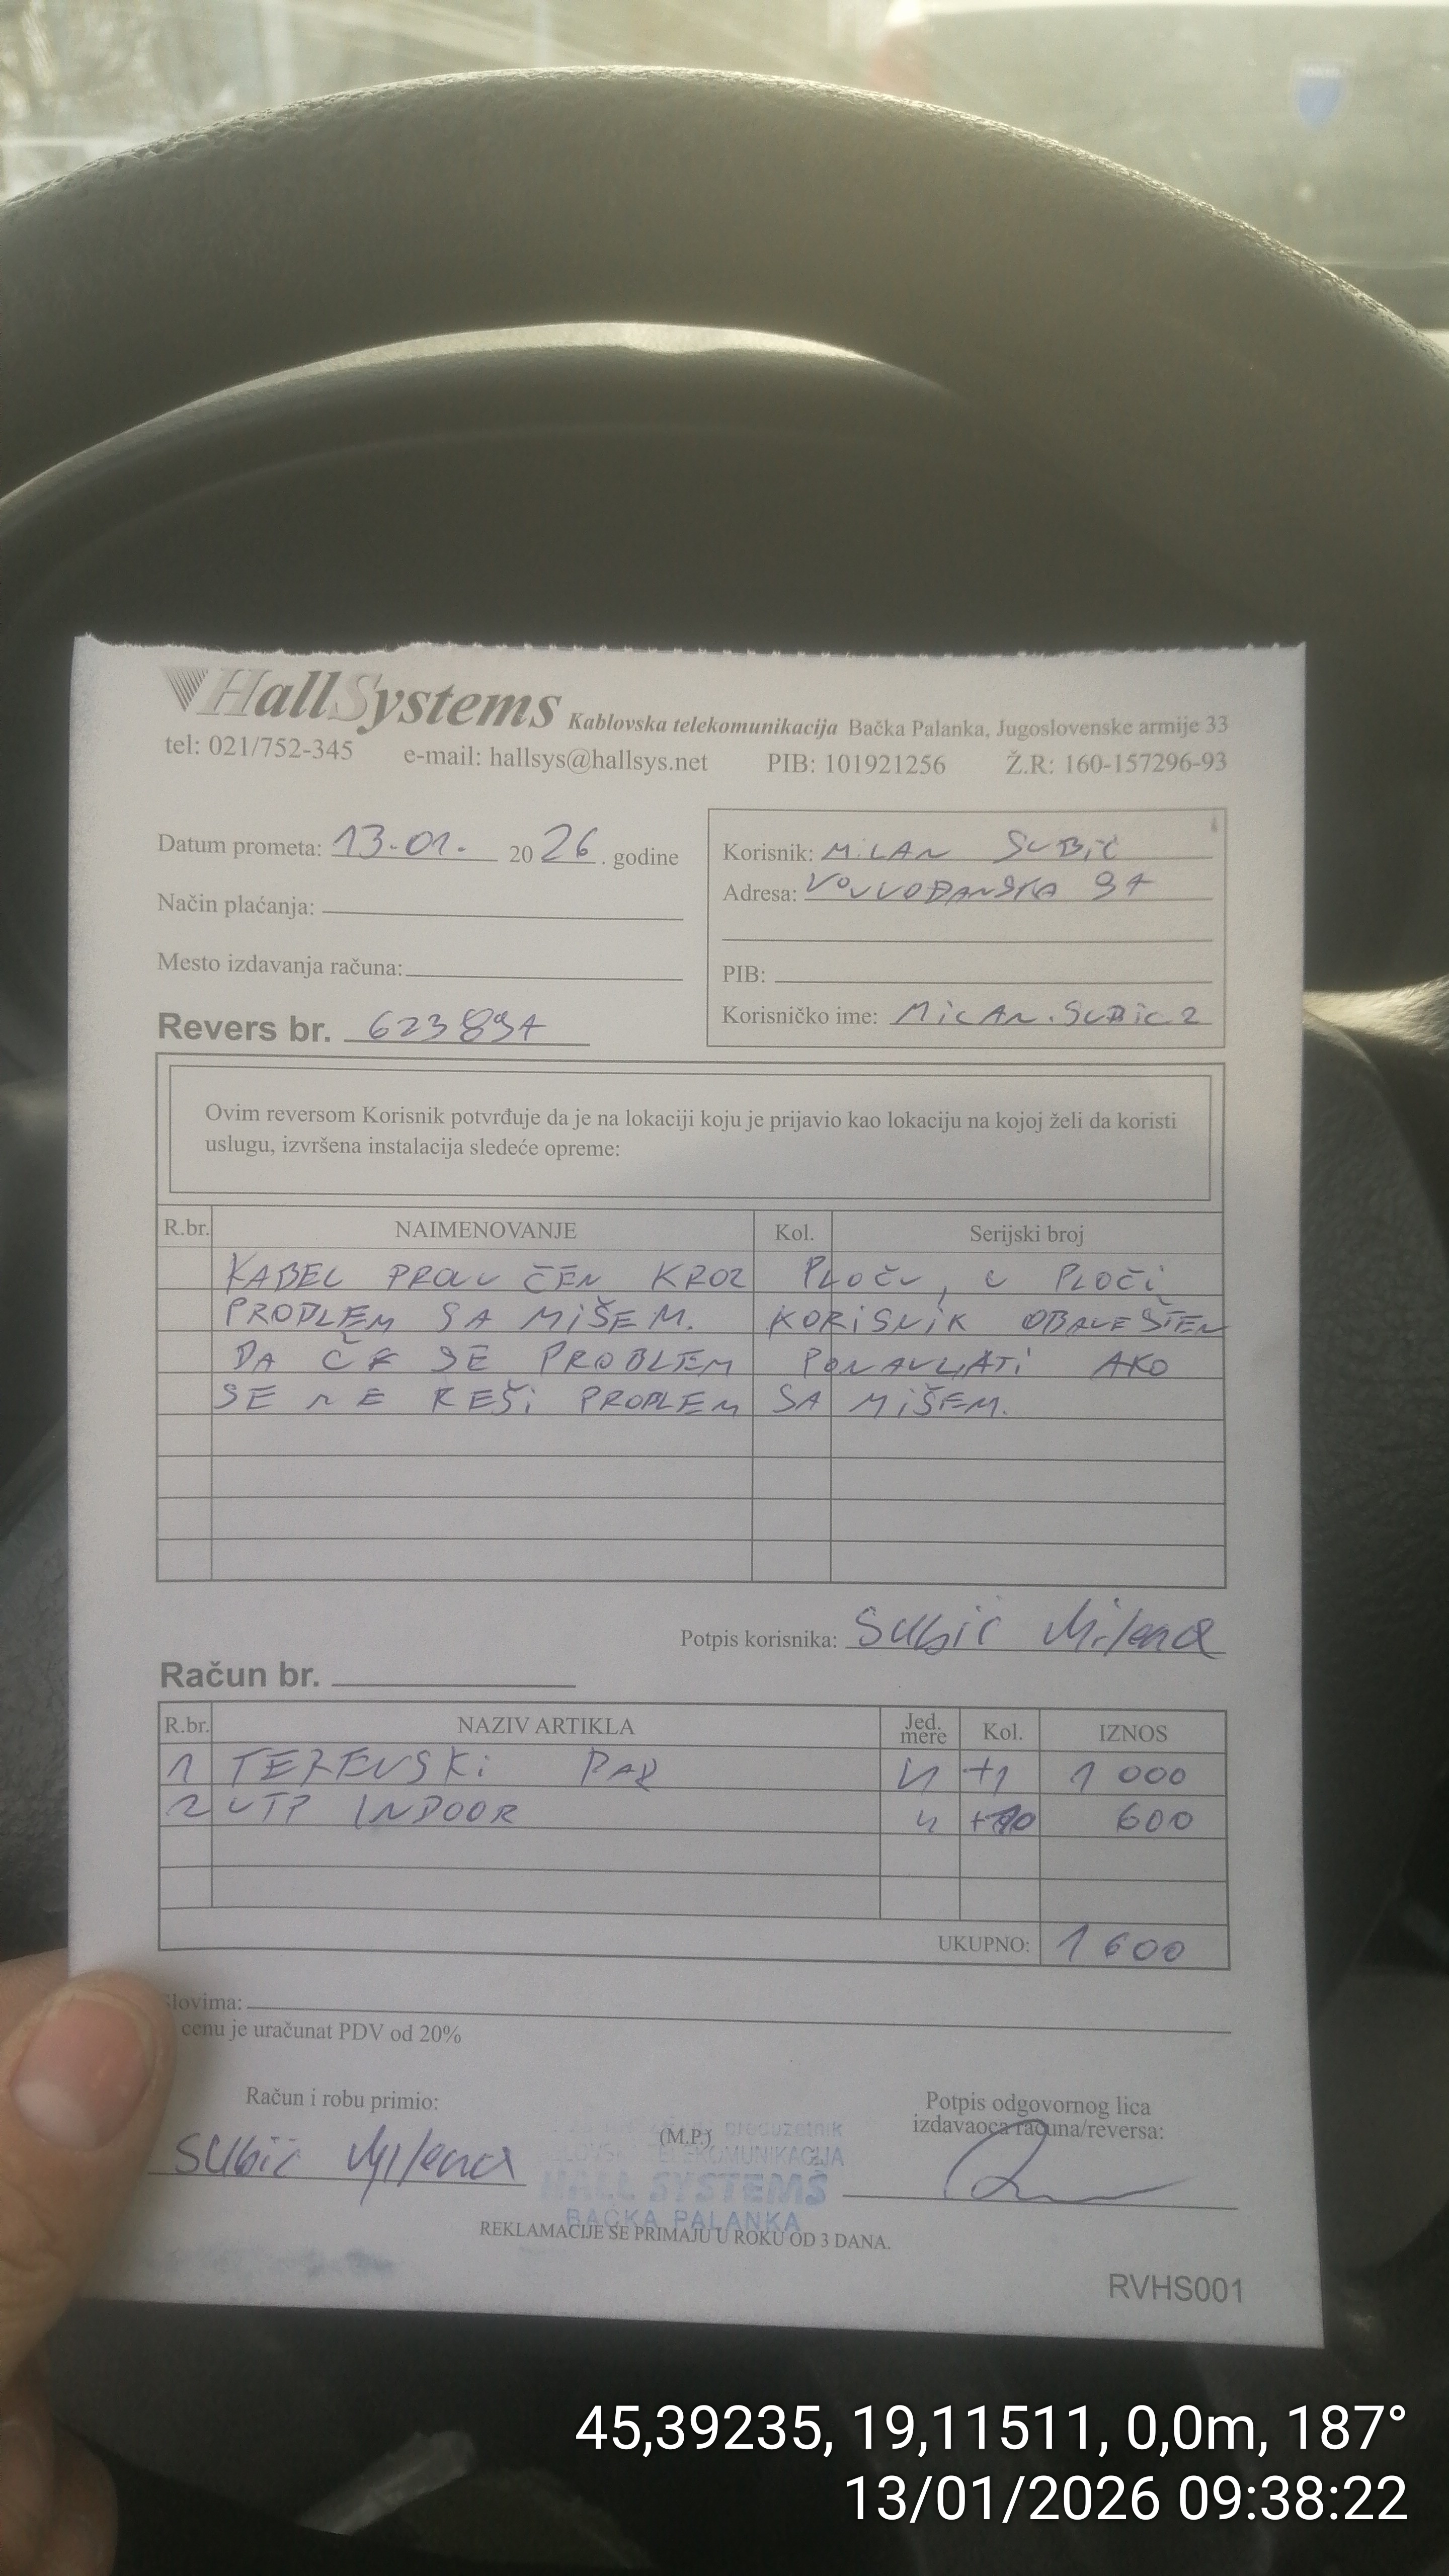 HallSystems Kablovska telekomunikacija Bačka Palanka, Jugoslovenske armije 33
tel: 021/752-345 e-mail: hallsys@hallsys.net PIB: 101921256 Ž.R: 160-157296-93
Datum prometa: 13.01. 2026. godine
Način plaćanja:
Mesto izdavanja računa:
Revers br. 623897
Korisnik: MILAN SUBIĆ
Adresa: VOJVOĐANSKA 97
PIB:
Korisničko ime: MILAN.SUBIC2
Ovim reversom Korisnik potvrđuje da je na lokaciji koju je prijavio kao lokaciju na kojoj želi da koristi
uslugu, izvršena instalacija sledeće opreme:
R.br. NAIMENOVANJE Kol. Serijski broj
KABEL PROVUČEN KROZ PLOČU, U PLOČI
PROBLEM SA MIŠEM. KORISNIK OBAVEŠTEN
DA ĆE SE PROBLEM PONAVLJATI AKO
SE NE REŠI PROBLEM SA MIŠEM.
Potpis korisnika: Subić Milena
Račun br.
R.br. NAZIV ARTIKLA Jed. mere Kol. IZNOS
1 TERENSKI RAD +1 1 000
2 UTP INDOOR 600
UKUPNO: 1 600
lovima:
cenu je uračunat PDV od 20%
Računi i robu primio:
Subić Milena
(M.P.)
preduzetnik
TELEKOMUNIKACIJA
HALL SYSTEMS
BAČKA PALANKA
Potpis odgovornog lica
izdavaoca računa/reversa:
REKLAMACIJE SE PRIMAJU U ROKU OD 3 DANA.
RVHS001
45,39235, 19,11511, 0,0m, 187°
13/01/2026 09:38:22